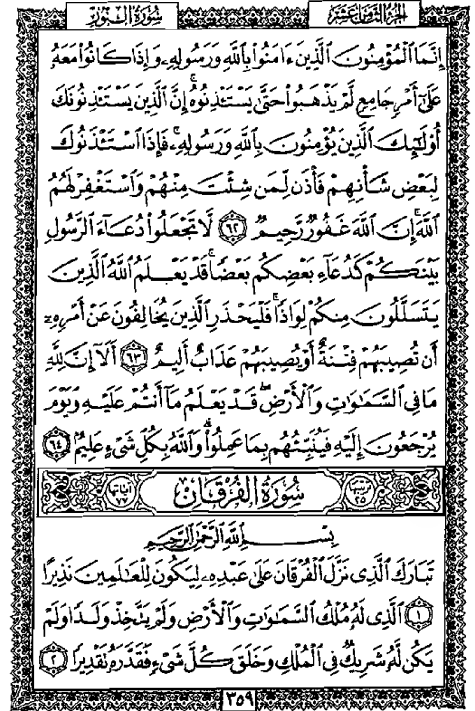 سُورَةُ النُّورِ
الجُزْءُ الثَّامِنَ عَشَرَ
إِنَّمَا ٱلْمُؤْمِنُونَ ٱلَّذِينَ ءَامَنُوا۟ بِٱللَّهِ وَرَسُولِهِۦ وَإِذَا كَانُوا۟ مَعَهُۥ
عَلَىٰٓ أَمْرٍ جَامِعٍ لَّمْ يَذْهَبُوا۟ حَتَّىٰ يَسْتَـْٔذِنُوهُ ۚ إِنَّ ٱلَّذِينَ يَسْتَـْٔذِنُونَكَ
أُو۟لَـٰٓئِكَ ٱلَّذِينَ يُؤْمِنُونَ بِٱللَّهِ وَرَسُولِهِۦ ۚ فَإِذَا ٱسْتَـْٔذَنُوكَ
لِبَعْضِ شَأْنِهِمْ فَأْذَن لِّمَن شِئْتَ مِنْهُمْ وَٱسْتَغْفِرْ لَهُمُ
ٱللَّهَ ۚ إِنَّ ٱللَّهَ غَفُورٌ رَّحِيمٌ ٦٢ لَّا تَجْعَلُوا۟ دُعَآءَ ٱلرَّسُولِ
بَيْنَكُمْ كَدُعَآءِ بَعْضِكُم بَعْضًا ۚ قَدْ يَعْلَمُ ٱللَّهُ ٱلَّذِينَ
يَتَسَلَّلُونَ مِنكُمْ لِوَاذًا ۚ فَلْيَحْذَرِ ٱلَّذِينَ يُخَالِفُونَ عَنْ أَمْرِهِۦٓ
أَن تُصِيبَهُمْ فِتْنَةٌ أَوْ يُصِيبَهُمْ عَذَابٌ أَلِيمٌ ٦٣ أَلَآ إِنَّ لِلَّهِ
مَا فِى ٱلسَّمَـٰوَٰتِ وَٱلْأَرْضِ ۖ قَدْ يَعْلَمُ مَآ أَنتُمْ عَلَيْهِ وَيَوْمَ
يُرْجَعُونَ إِلَيْهِ فَيُنَبِّئُهُم بِمَا عَمِلُوا۟ ۗ وَٱللَّهُ بِكُلِّ شَىْءٍ عَلِيمٌۢ ٦٤
سُورَةُ الفُرْقَانِ
بِسْمِ ٱللَّهِ ٱلرَّحْمَـٰنِ ٱلرَّحِيمِ
تَبَارَكَ ٱلَّذِى نَزَّلَ ٱلْفُرْقَانَ عَلَىٰ عَبْدِهِۦ لِيَكُونَ لِلْعَـٰلَمِينَ نَذِيرًا
١ ٱلَّذِى لَهُۥ مُلْكُ ٱلسَّمَـٰوَٰتِ وَٱلْأَرْضِ وَلَمْ يَتَّخِذْ وَلَدًا وَلَمْ
يَكُن لَّهُۥ شَرِيكٌ فِى ٱلْمُلْكِ وَخَلَقَ كُلَّ شَىْءٍ فَقَدَّرَهُۥ تَقْدِيرًا ٢
٣٥٩